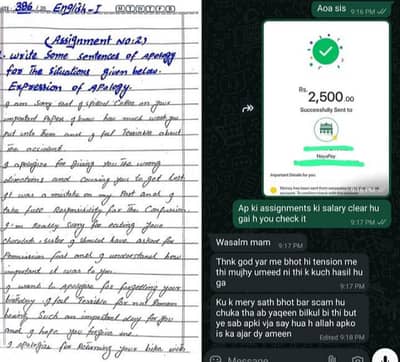 386
English-I
M T W T F S
(Assignment No:2)
write Some sentences of apology
for The Situations given below.
Expression of Apology.
I am Sorry that I spilled Coffee on your
important Paper I know how much work you
put into Them and I feel Terrible about
The accident.
I apologize for giving you The wrong
directions and causing you to get lost.
It was a mistake on my Part and I
take full Responsibility for The Confusion.
I'm Really Sorry for eating your
Chocolate
I should have asked for
Permission first and I understand how
important it was to you.
I want to apologize for forgetting your
birthday I feel Terrible for not Remem
bering Such an important day for you
and I hope you forgive me
I apologize for Returning your bike with
Aoa sis 9:16 PM
Rs.
2,500.00
Successfully Sent to
NayaPay
Important Details for you
Money has been sent from
Ap ki assignments ki salary clear hu
gai h you check it
9:17 PM
Wasalm mam
9:17 PM
Thnk god yar me bhot hi tension me
thi mujhy umeed ni thi k kuch hasil hu
ga
9:17 PM
Ku k mery sath bhot bar scam hu
chuka tha ab yaqeen bilkul bi thi but
ye sab apki vja say hua h allah apko
is ka ajar dy ameen
Edited 9:18 PM
Message